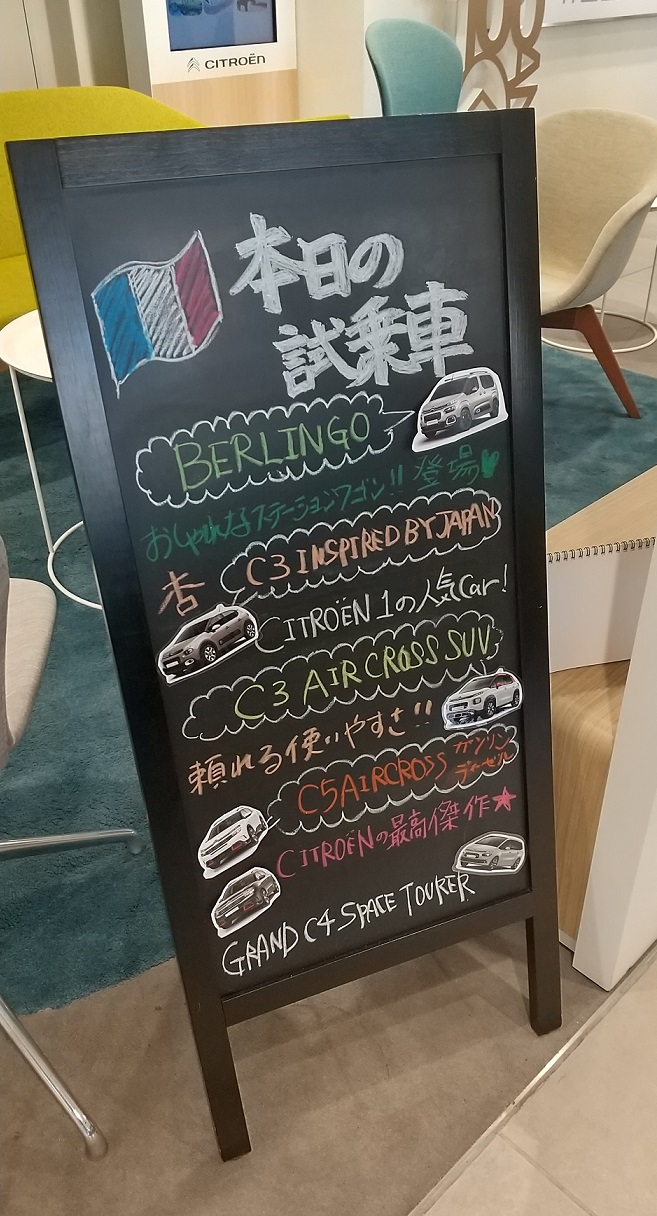 CITROËN
本日の
試乗車
BERLINGO
おしゃれなステーションワゴン!! 登場♥
C3 INSPIRED BY JAPAN
杏
CITROËN 1の人気Car!
C3 AIRCROSS SUV
頼れる使いやすさ!!
C5 AIRCROSS ガソリン
ディーゼル
CITROËNの最高傑作★
GRAND C4 SPACE TOURER